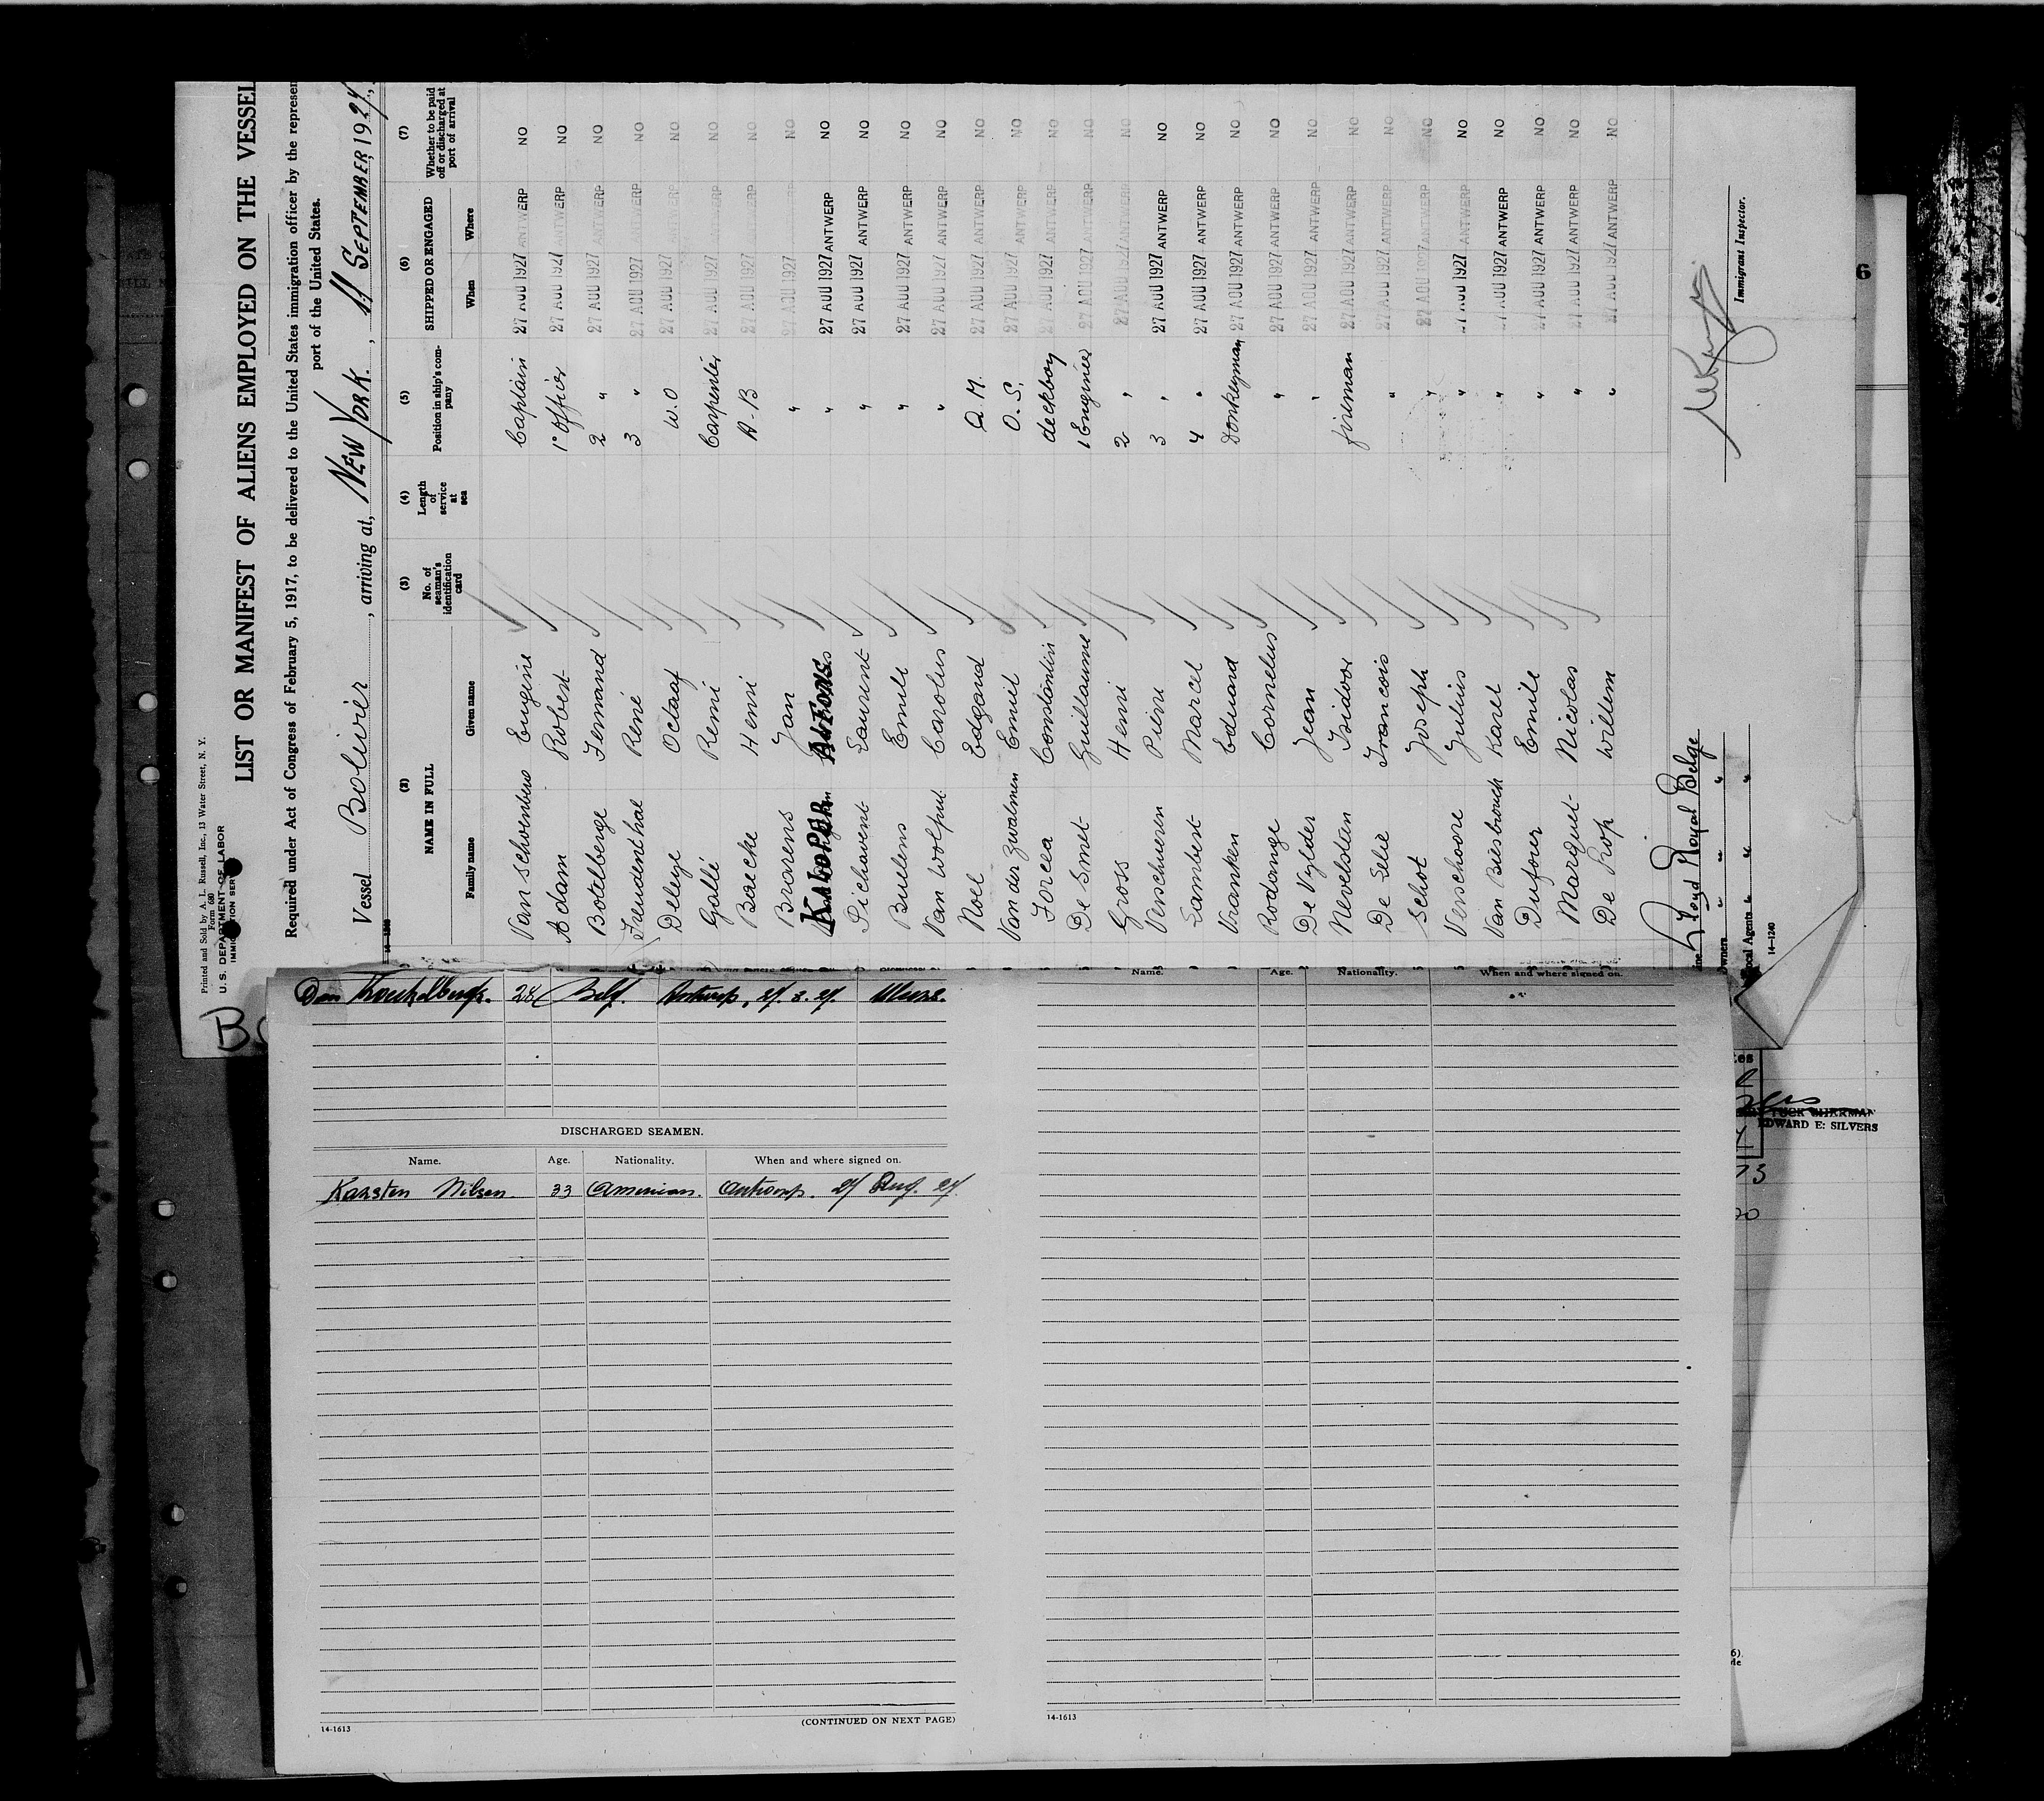 Printed and Sold by A. L. Russell, Inc., 13 Water Street, N. Y.
Form 680
U. S. DEPARTMENT OF LABOR
LIST OR MANIFEST OF ALIENS EMPLOYED ON THE VESSEL
Required under Act of Congress of February 5, 1917, to be delivered to the United States immigration officer by the represen
port of the United States.
Vessel Bolivier, arriving at, NEW YORK, 11 SEPTEMBER, 1927,
(2) NAME IN FULL (3) No. of seaman's identification card (4) Length of service at sea (5) Position in ship's company (6) SHIPPED OR ENGAGED (7) Whether to be paid off or discharged at port of arrival
Family name Given name When Where
Van Schoenberg Eugine Captain 27 AOU 1927 ANTWERP NO
Adam Robert 1° Officer 27 AOU 1927 ANTWERP NO
Botelberge Fernand 2 " 27 AOU 1927 ANTWERP NO
Freudenthal René 3 " 27 AOU 1927 ANTWERP NO
Deleye Octaaf W.O 27 AOU 1927 ANTWERP NO
Gallé Remi Carpenter 27 AOU 1927 ANTWERP NO
Baecke Henri A-B 27 AOU 1927 ANTWERP NO
Brarens Jan " 27 AOU 1927 ANTWERP NO
ALFONS " 27 AOU 1927 ANTWERP NO
Dichavent Laurent " 27 AOU 1927 ANTWERP NO
Buelens Emile " 27 AOU 1927 ANTWERP NO
Van Wolput Carolus " 27 AOU 1927 ANTWERP NO
Noel Edgard Q.M. 27 AOU 1927 ANTWERP NO
Van der Zwalmen Emiel O.S. 27 AOU 1927 ANTWERP NO
Forcea Constantin deckboy 27 AOU 1927 ANTWERP NO
De Smet Guillaume 1 Enginéer 27 AOU 1927 ANTWERP NO
Gross Henri 2 " 27 AOU 1927 ANTWERP NO
Verschueren Pierre 3 " 27 AOU 1927 ANTWERP NO
Lambert Marcel 4 " 27 AOU 1927 ANTWERP NO
Vranken Eduard Donkeyman 27 AOU 1927 ANTWERP NO
Rodange Cornelius " 27 AOU 1927 ANTWERP NO
De Vylder Jean " 27 AOU 1927 ANTWERP NO
Nevelsten Isidoor fireman 27 AOU 1927 ANTWERP NO
De Lelie Francois " 27 AOU 1927 ANTWERP NO
Schot Joseph " 27 AOU 1927 ANTWERP NO
Verschoore Julius " 27 AOU 1927 ANTWERP NO
Van Biesbrouck Karel " 27 AOU 1927 ANTWERP NO
Dufour Emile " 27 AOU 1927 ANTWERP NO
Marquet Nicolas " 27 AOU 1927 ANTWERP NO
De Rop Willem " 27 AOU 1927 ANTWERP NO
Line Lloyd Royal Belge
Owners " " "
Local Agents " " "
14-1240
Immigrant Inspector.
28 Belg. Antwerp, 27.8.27
DISCHARGED SEAMEN.
Name. Age. Nationality. When and where signed on.
Karsten Nilsen 33 American. Antwerp. 27 Aug. 27.
14-1613 (CONTINUED ON NEXT PAGE)
Name. Age. Nationality. When and where signed on.
14-1613
EDWARD E. SILVERS